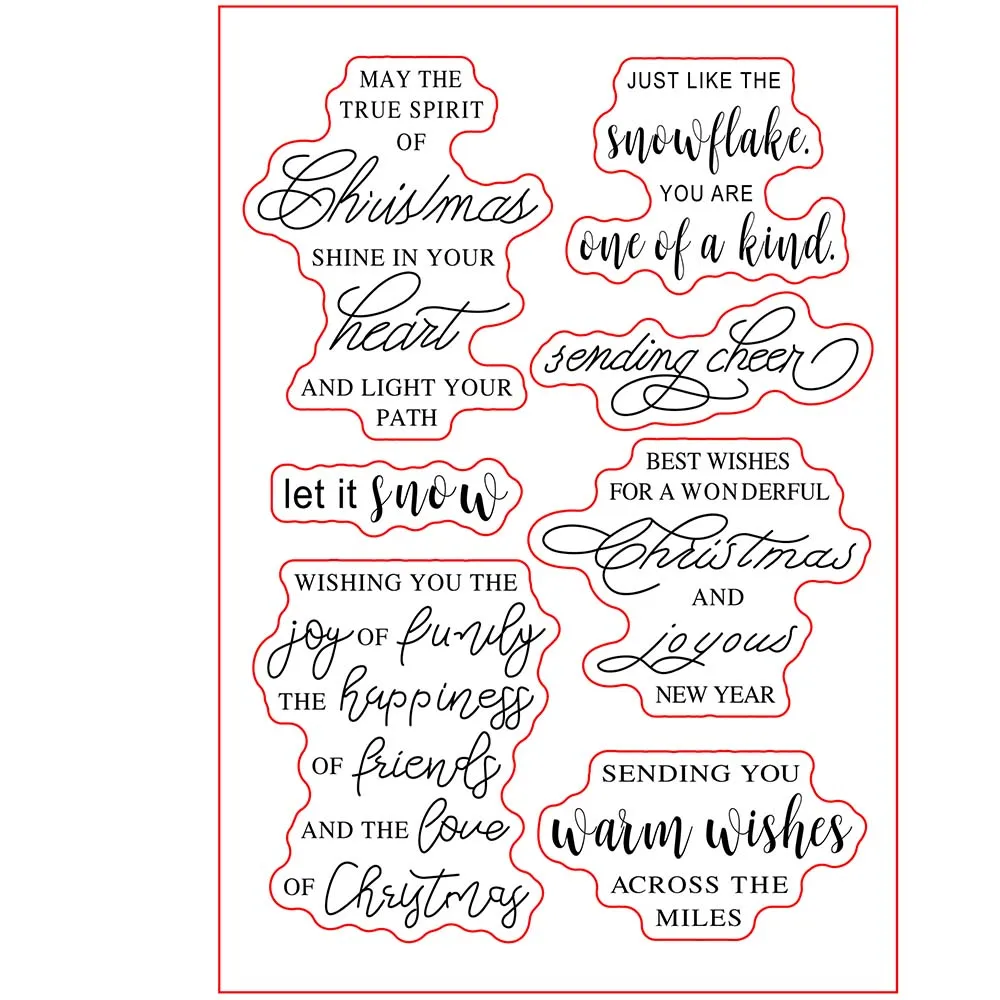 MAY THE
TRUE SPIRIT
OF
Christmas
SHINE IN YOUR
heart
AND LIGHT YOUR
PATH
let it snow
WISHING YOU THE
joy OF family
THE happiness
OF friends
AND THE love
OF Christmas
JUST LIKE THE
snowflake.
YOU ARE
one of a kind.
sending cheer
BEST WISHES
FOR A WONDERFUL
Christmas
AND
joyous
NEW YEAR
SENDING YOU
warm wishes
ACROSS THE
MILES